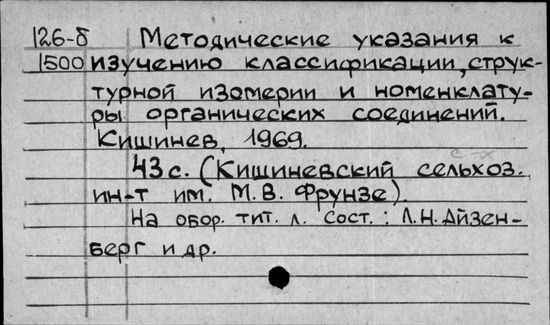 126-б Методические указания к
1500 изучению классификации, струк-
турной изомерии и номенклату-
ры органических соединений.
Кишинев, 1969.
43 с. (Кишиневский сельхоз.
ин-т им. М.В. Фрунзе).
На обор. тит. л. сост.: Л.Н. Айзен-
берг и др.